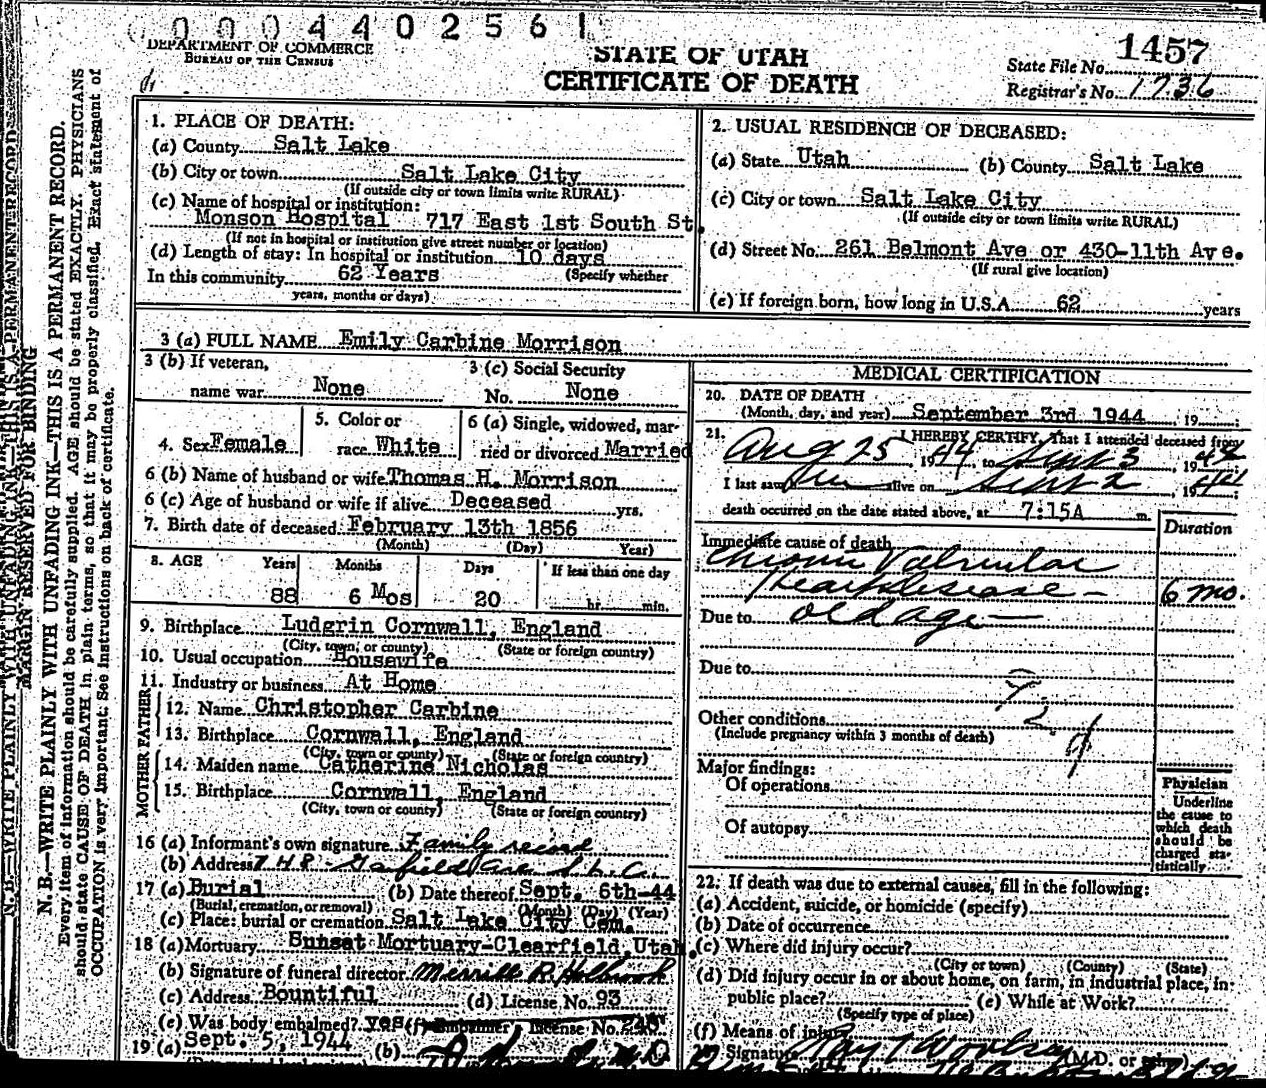 0 0 0 4 4 0 2 5 6 1
DEPARTMENT OF COMMERCE
BUREAU OF THE CENSUS
STATE OF UTAH
CERTIFICATE OF DEATH
1457
State File No.
Registrar's No. 1736
MARGIN RESERVED FOR BINDING
N. B.—WRITE PLAINLY WITH UNFADING INK—THIS IS A PERMANENT RECORD.
Every item of information should be carefully supplied. AGE should be stated EXACTLY. PHYSICIANS
should state CAUSE OF DEATH in plain terms, so that it may be properly classified. Exact statement of
OCCUPATION is very important. See instructions on back of certificate.
1. PLACE OF DEATH:
(a) County Salt Lake
(b) City or town Salt Lake City
(If outside city or town limits write RURAL)
(c) Name of hospital or institution:
Monson Hospital 717 East 1st South St.
(If not in hospital or institution give street number or location)
(d) Length of stay: In hospital or institution 10 days
In this community 62 Years (Specify whether
years, months or days)
2. USUAL RESIDENCE OF DECEASED:
(a) State Utah (b) County Salt Lake
(c) City or town Salt Lake City
(If outside city or town limits write RURAL)
(d) Street No. 261 Belmont Ave or 430-11th Ave.
(If rural give location)
(e) If foreign born, how long in U.S.A 62 years
3 (a) FULL NAME Emily Carbine Morrison
3 (b) If veteran,
name war None
3 (c) Social Security
No. None
4. Sex Female
5. Color or
race White
6 (a) Single, widowed, mar-
ried or divorced Married
6 (b) Name of husband or wife Thomas H. Morrison
6 (c) Age of husband or wife if alive Deceased yrs.
7. Birth date of deceased February 13th 1856
(Month) (Day) Year)
8. AGE Years Months Days If less than one day
88 6 Mos 20 hr. min.
9. Birthplace Ludgrin Cornwall, England
(City, town, or county) (State or foreign country)
10. Usual occupation Housewife
11. Industry or business At Home
FATHER
12. Name Christopher Carbine
13. Birthplace Cornwall, England
(City, town or county) (State or foreign country)
MOTHER
14. Maiden name Catherine Nicholas
15. Birthplace Cornwall, England
(City, town or county) (State or foreign country)
16 (a) Informant's own signature Family record
(b) Address Garfield Ave S.L.C.
17 (a) Burial (b) Date thereof Sept. 6th-44
(Burial, cremation, or removal) (Month) (Day) (Year)
(c) Place: burial or cremation Salt Lake City Cem.
18 (a) Mortuary Sunset Mortuary-Clearfield, Utah.
(b) Signature of funeral director Merrill R. Holbrook
(c) Address Bountiful (d) License No. 93
(e) Was body embalmed? yes (f) Embalmer's License No. 248
19 (a) Sept. 5, 1944 (b)
MEDICAL CERTIFICATION
20. DATE OF DEATH
(Month, day, and year) September 3rd 1944, 19
21. I HEREBY CERTIFY, That I attended deceased from
Aug 25, 1944, to Sept 3, 1944
I last saw alive on Sept 2, 1944;
death occurred on the date stated above, at 7:15A m.
Duration
Immediate cause of death
Chronic Valvular
Heart disease — 6 mo.
Due to old age
Due to
Other conditions
(Include pregnancy within 3 months of death)
Major findings:
Of operations
Of autopsy
Physician
Underline
the cause to
which death
should be
charged sta-
tistically
22. If death was due to external causes, fill in the following:
(a) Accident, suicide, or homicide (specify)
(b) Date of occurrence
(c) Where did injury occur?
(City or town) (County) (State)
(d) Did injury occur in or about home, on farm, in industrial place, in
public place? (e) While at Work?
(Specify type of place)
(f) Means of injury
Signature (M.D. or other)